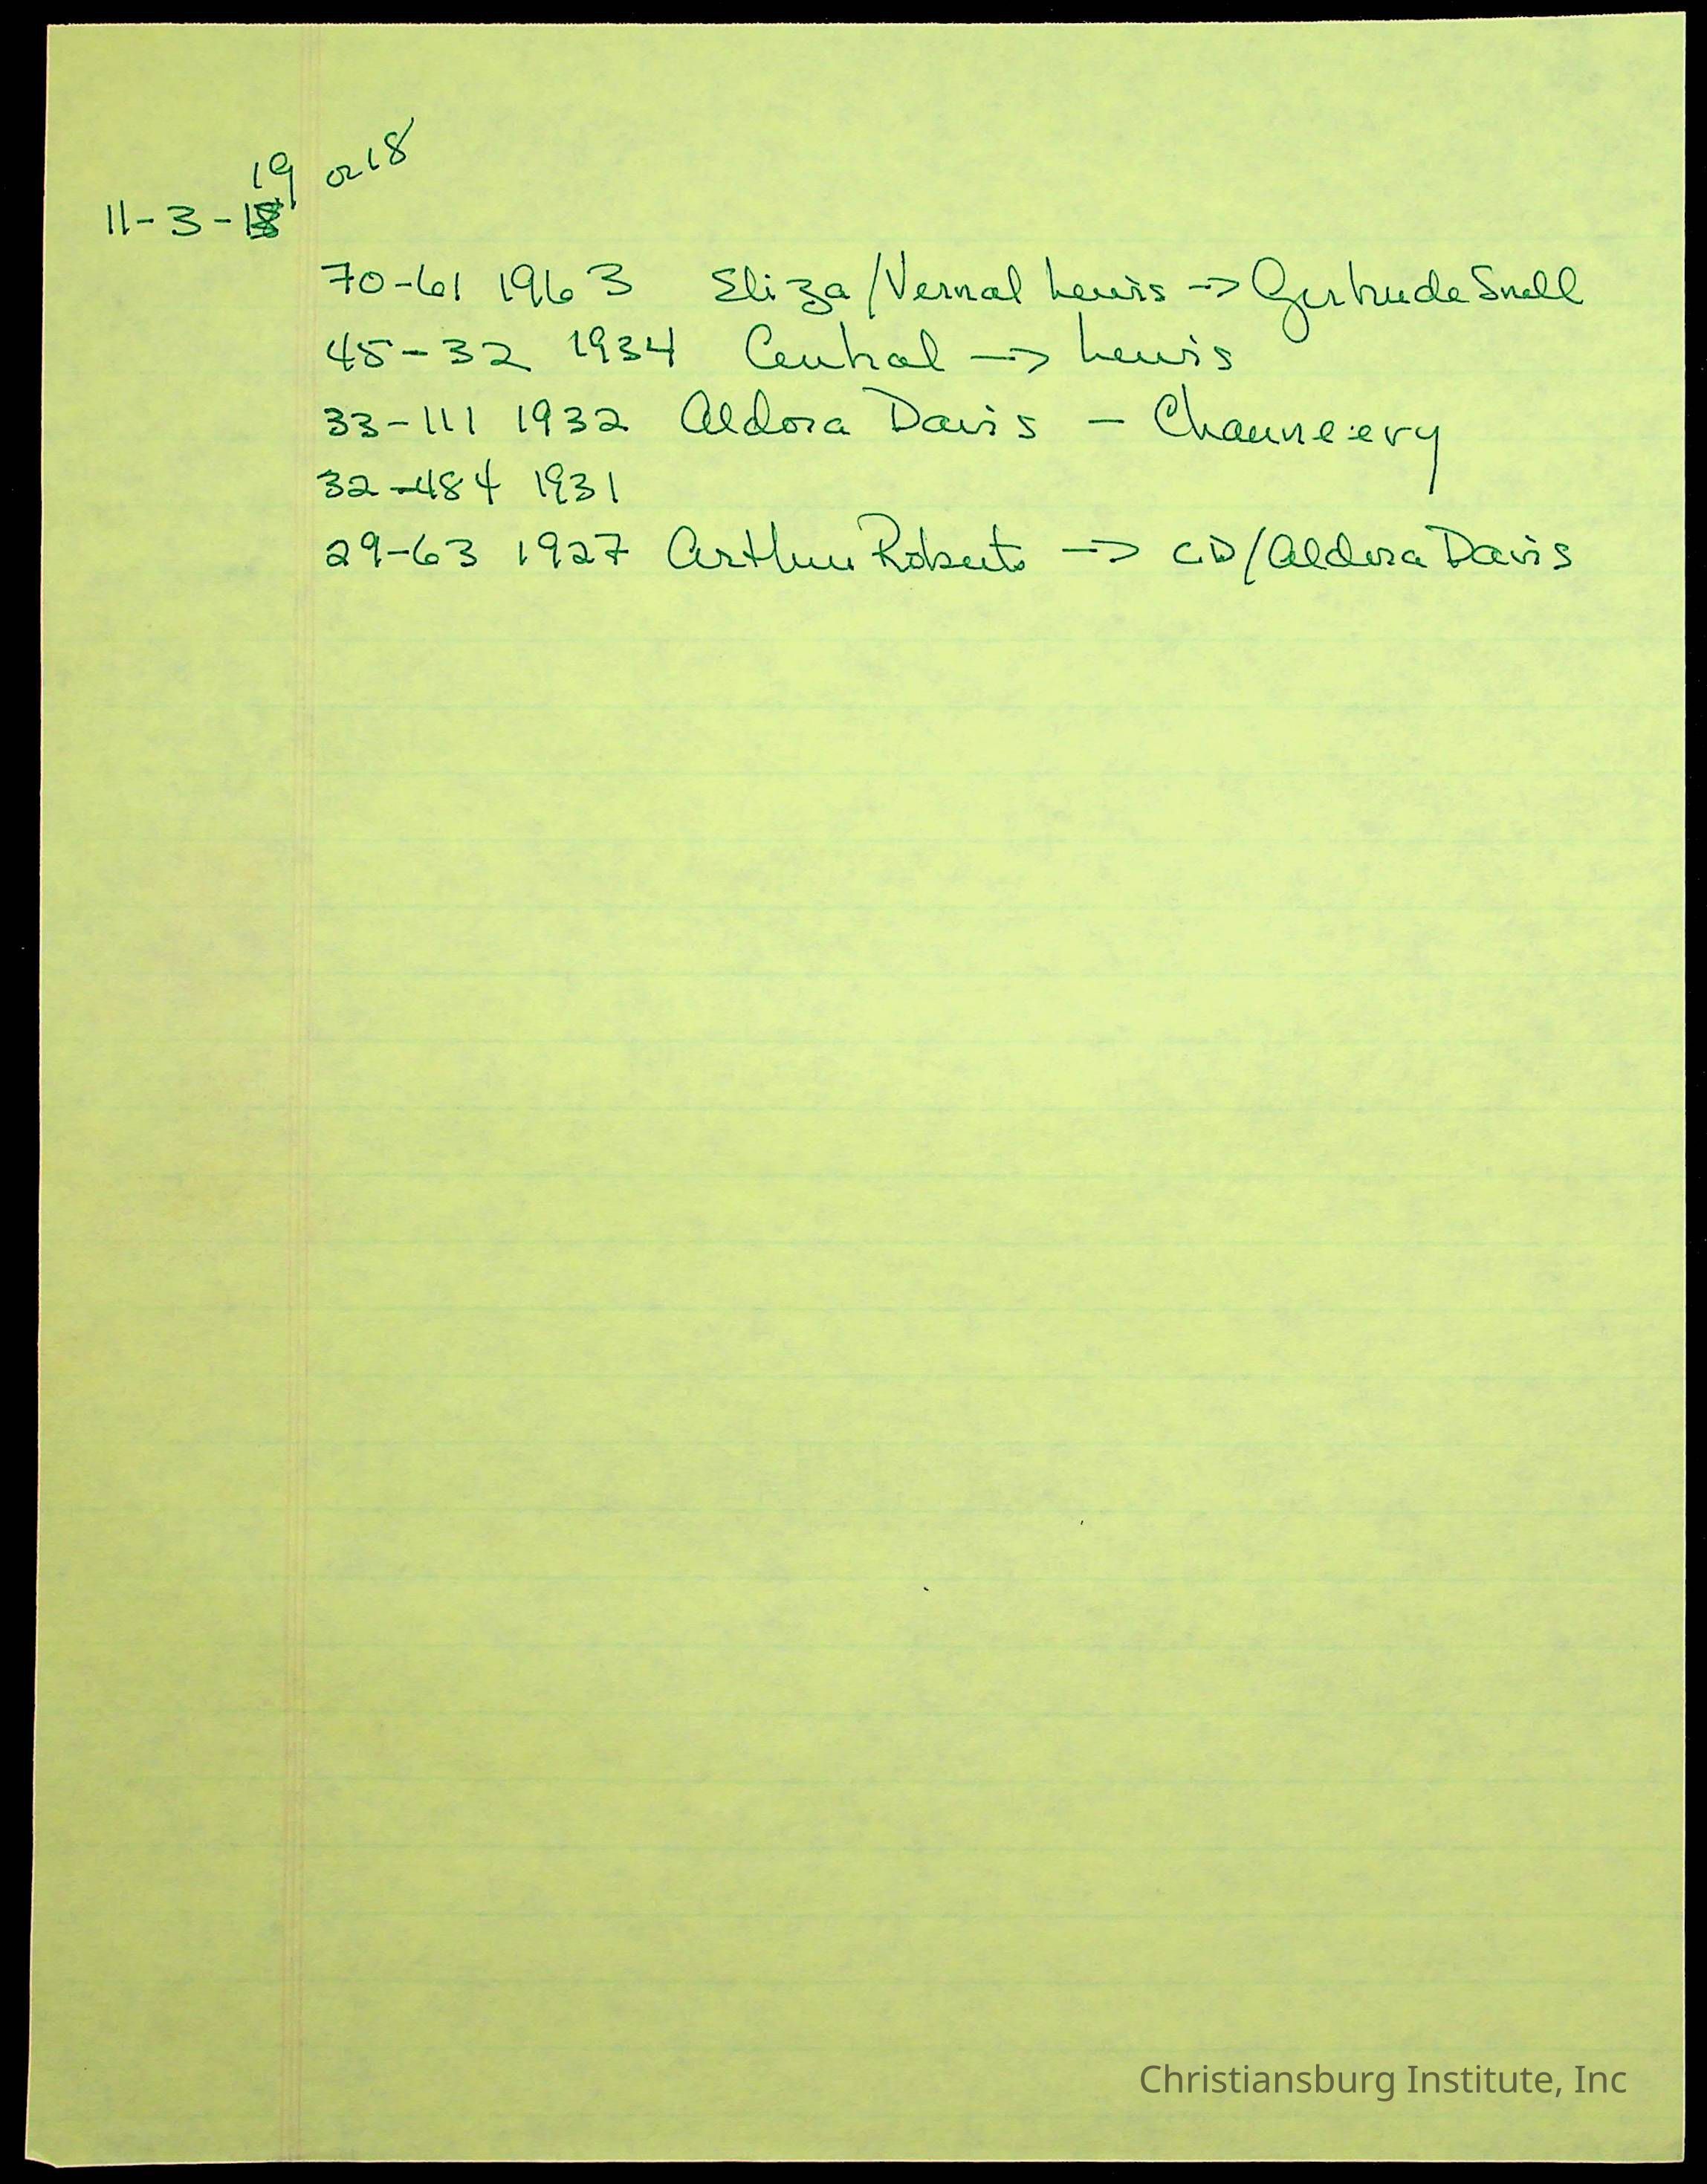 19 or 18
11-3-18
70-61 1963 Eliza/Vernal Lewis -> Gertrude Snell
45-32 1934 Central -> Lewis
33-111 1932 Aldora Davis - Chaune:ery
32-484 1931
29-63 1927 Arthur Roberts -> CD/Aldora Davis
Christiansburg Institute, Inc